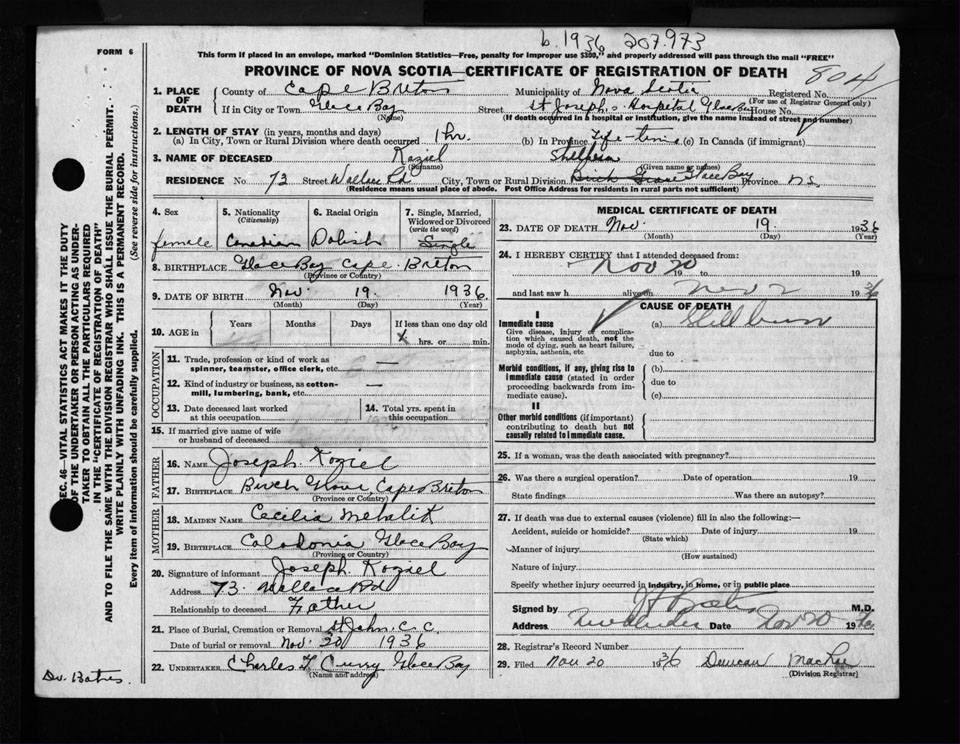 b. 1936 207.973
FORM 6
This form if placed in an envelope, marked "Dominion Statistics—Free, penalty for improper use $300," and properly addressed will pass through the mail "FREE"
PROVINCE OF NOVA SCOTIA—CERTIFICATE OF REGISTRATION OF DEATH
804
1. PLACE OF DEATH
County of Cape Breton Municipality of Nova Scotia Registered No.
(For use of Registrar General only)
If in City or Town Glace Bay Street St Joseph's Hospital Glace Bay House No.
(Name) (If death occurred in a hospital or institution, give the name instead of street and number)
2. LENGTH OF STAY (in years, months and days)
(a) In City, Town or Rural Division where death occurred 1 hr. (b) In Province Life-time (c) In Canada (if immigrant)
3. NAME OF DECEASED Koziel
(Surname) (Given name or names)
RESIDENCE No 73 Street Wallace Rd City, Town or Rural Division Birch Grove Glace Bay Province N.S.
(Residence means usual place of abode. Post Office Address for residents in rural parts not sufficient)
4. Sex female
5. Nationality (Citizenship) Canadian
6. Racial Origin Polish
7. Single, Married, Widowed or Divorced (write the word) Single
8. BIRTHPLACE Glace Bay Cape Breton
(Province or Country)
9. DATE OF BIRTH Nov. 19. 1936
(Month) (Day) (Year)
10. AGE in Years Months Days If less than one day old
hrs. or min.
OCCUPATION
11. Trade, profession or kind of work as spinner, teamster, office clerk, etc. —
12. Kind of industry or business, as cotton-mill, lumbering, bank, etc. —
13. Date deceased last worked at this occupation
14. Total yrs. spent in this occupation
15. If married give name of wife or husband of deceased
FATHER
16. NAME Joseph Koziel
17. BIRTHPLACE Birch Grove, Cape Breton
(Province or Country)
MOTHER
18. MAIDEN NAME Cecilia Mehalik
19. BIRTHPLACE Caledonia Glace Bay
(Province or Country)
20. Signature of informant Joseph Koziel
Address 73 Wallace Rd
Relationship to deceased Father
21. Place of Burial, Cremation or Removal St John C.C.
Date of burial or removal Nov. 20 1936
22. UNDERTAKER Charles F. Curry Glace Bay
(Name and address)
MEDICAL CERTIFICATE OF DEATH
23. DATE OF DEATH Nov 19. 1936
(Month) (Day) (Year)
24. I HEREBY CERTIFY that I attended deceased from:
Nov 20 19 to 19
and last saw h alive on Nov 2 1936
CAUSE OF DEATH
I
Immediate cause
Give disease, injury or complication which caused death, not the mode of dying, such as heart failure, asphyxia, asthenia, etc
(a) Stillborn
due to
Morbid conditions, if any, giving rise to immediate cause (stated in order proceeding backwards from immediate cause).
(b)
due to
(c)
II
Other morbid conditions (if important) contributing to death but not causally related to immediate cause.
25. If a woman, was the death associated with pregnancy?
26. Was there a surgical operation? Date of operation 19
State findings Was there an autopsy?
27. If death was due to external causes (violence) fill in also the following:—
Accident, suicide or homicide? Date of injury 19
(State which)
Manner of injury
(How sustained)
Nature of injury
Specify whether injury occurred in industry, in home, or in public place
Signed by M.D.
Address Date Nov 20 1936
28. Registrar's Record Number
29. Filed Nov 20 1936 Duncan MacRae
(Division Registrar)
SEC. 46—VITAL STATISTICS ACT MAKES IT THE DUTY
OF THE UNDERTAKER OR PERSON ACTING AS UNDER-
TAKER TO OBTAIN ALL THE PARTICULARS REQUIRED
IN THE "CERTIFICATE OF REGISTRATION OF DEATH"
AND TO FILE THE SAME WITH THE DIVISION REGISTRAR WHO SHALL ISSUE THE BURIAL PERMIT.
WRITE PLAINLY WITH UNFADING INK. THIS IS A PERMANENT RECORD.
Every item of information should be carefully supplied. (See reverse side for instructions.)
Dr. Bates.